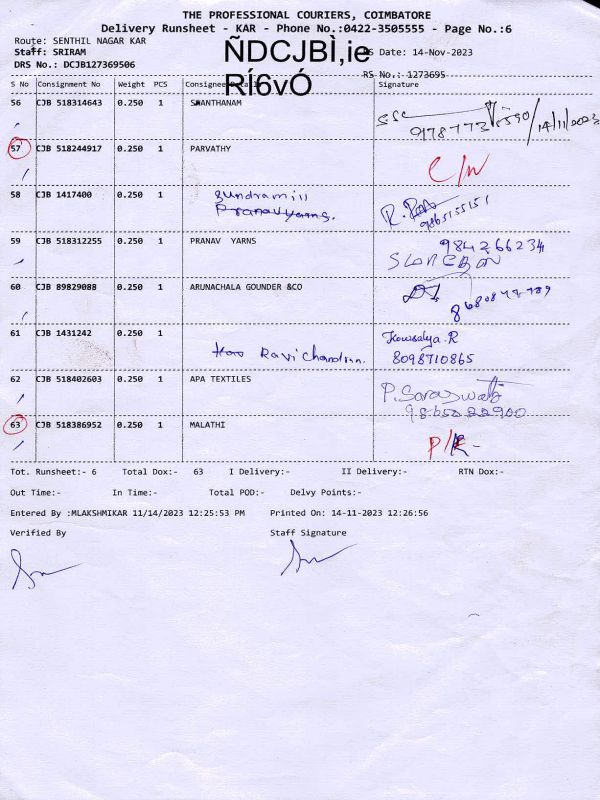 THE PROFESSIONAL COURIERS, COIMBATORE
Delivery Runsheet - KAR - Phone No.:0422-3505555 - Page No.:6
Route: SENTHIL NAGAR KAR
ÑDCJBÌ,ie
RÍ6vÓ
Staff: SRIRAM RS Date: 14-Nov-2023
DRS No.: DCJB127369506 RS No.: 1273695
S No Consignment No Weight PCS Consignee Details Signature
56 CJB 518314643 0.250 1 SHANTHANAM
14/11/2023
57 CJB 518244917 0.250 1 PARVATHY C/N
58 CJB 1417400 0.250 1 Sundramill
Pranavyarns.
9865155151
59 CJB 518312255 0.250 1 PRANAV YARNS 984266234
60 CJB 89829088 0.250 1 ARUNACHALA GOUNDER &CO
61 CJB 1431242 0.250 1 Kowsalya.R
Ravichandran. 8098710865
62 CJB 518402603 0.250 1 APA TEXTILES P.Saraswathi
63 CJB 518386952 0.250 1 MALATHI
Tot. Runsheet:- 6 Total Dox:- 63 I Delivery:- II Delivery:- RTN Dox:-
Out Time:- In Time:- Total POD:- Delvy Points:-
Entered By :MLAKSHMIKAR 11/14/2023 12:25:53 PM Printed On: 14-11-2023 12:26:56
Verified By Staff Signature